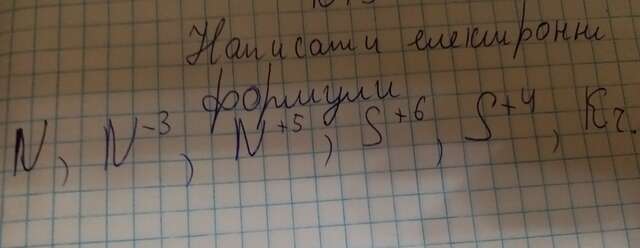 Написати електронні
формули
N, N⁻³, N⁺⁵, S⁺⁶, S⁺⁴, Kr